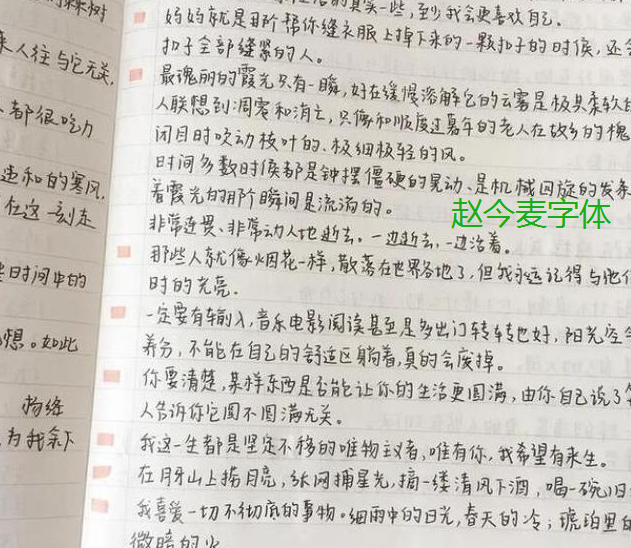 来人往与它无关,
都很吃力
的寒风,
在这一刻走
时间中的
想。如此
为我余下
妈妈就是用那个帮你缝衣服上掉下来的一颗扣子的时候,还
扣子全部缝紧的人。
最瑰丽的霞光只有一瞬,好在缓慢溶解它的云雾是极其柔软
人联想到凋零和消亡,只像和顺度过暮年的老人在故乡的槐
闭目时吹动枝叶的、极细极轻的风。
时间多数时候都是钟摆僵硬的晃动、是机械回旋的发条
着霞光的那个瞬间是流淌的。
赵今麦字体
非常连畏、非常动人地逝去。一边逝去,一边活着。
那些人就像烟花一样,散落在世界各地了,但我永远记得与他
时的光亮.
一定要有输入,音乐电影阅读甚至是多出门转转也好,阳光空
养分,不能在自己的舒适区躺着,真的会废掉。
你要清楚,某样东西是否能让你的生活更圆满,由你自己说了
人告诉你它圆不圆满无关。
我这一生都是坚定不移的唯物主义者,唯有你,我希望有来生。
在月牙山上捞月亮,织网捕星光,摘一缕清风下酒,喝一碗旧
我喜爱一切不彻底的事物。细雨中的日光,春天的冷;琥珀里
微暗的火